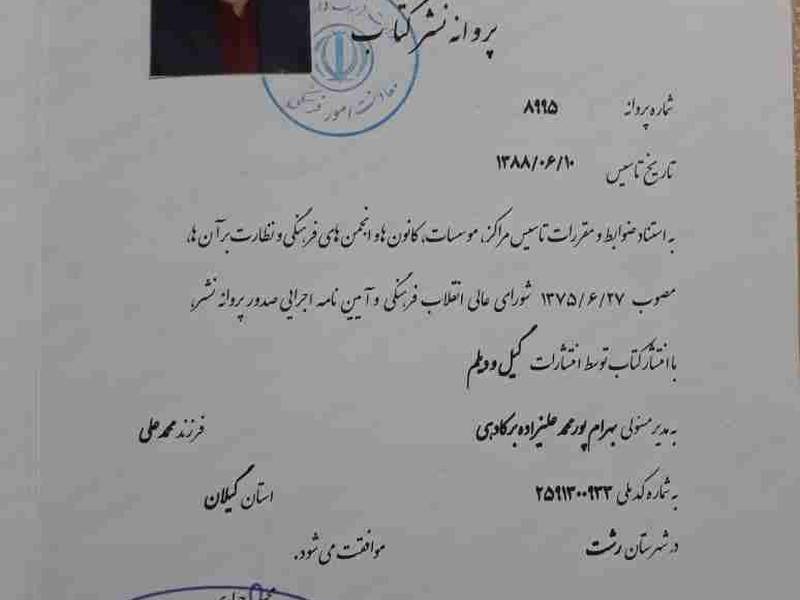 پروانه نشر کتاب
معاونت امور فرهنگی
شماره پروانه ۸۹۹۵
تاریخ تاسیس ۱۳۸۸/۰۶/۱۰
به استناد ضوابط و مقررات تاسیس مراکز، موسسات، کانون ها و انجمن های فرهنگی و نظارت بر آن ها،
مصوب ۱۳۷۵/۶/۲۷ شورای عالی انقلاب فرهنگی و آیین نامه اجرایی صدور پروانه نشر،
با انتشار کتاب توسط انتشارات گیل و دیلم
به مدیر مسئولی بهرام پورمحمد علیزاده برکادهی فرزند محمدعلی
به شماره کد ملی ۲۵۹۱۳۰۰۹۳۳ استان گیلان
در شهرستان رشت موافقت می شود.